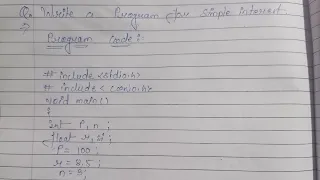 Q. Write a Program for simple interest
⇒
Program Code :
# include <stdio.h>
# include <conio.h>
void main()
{
int P, n ;
float r, si ;
P = 100 ;
r = 8.5 ;
n = 9 ;